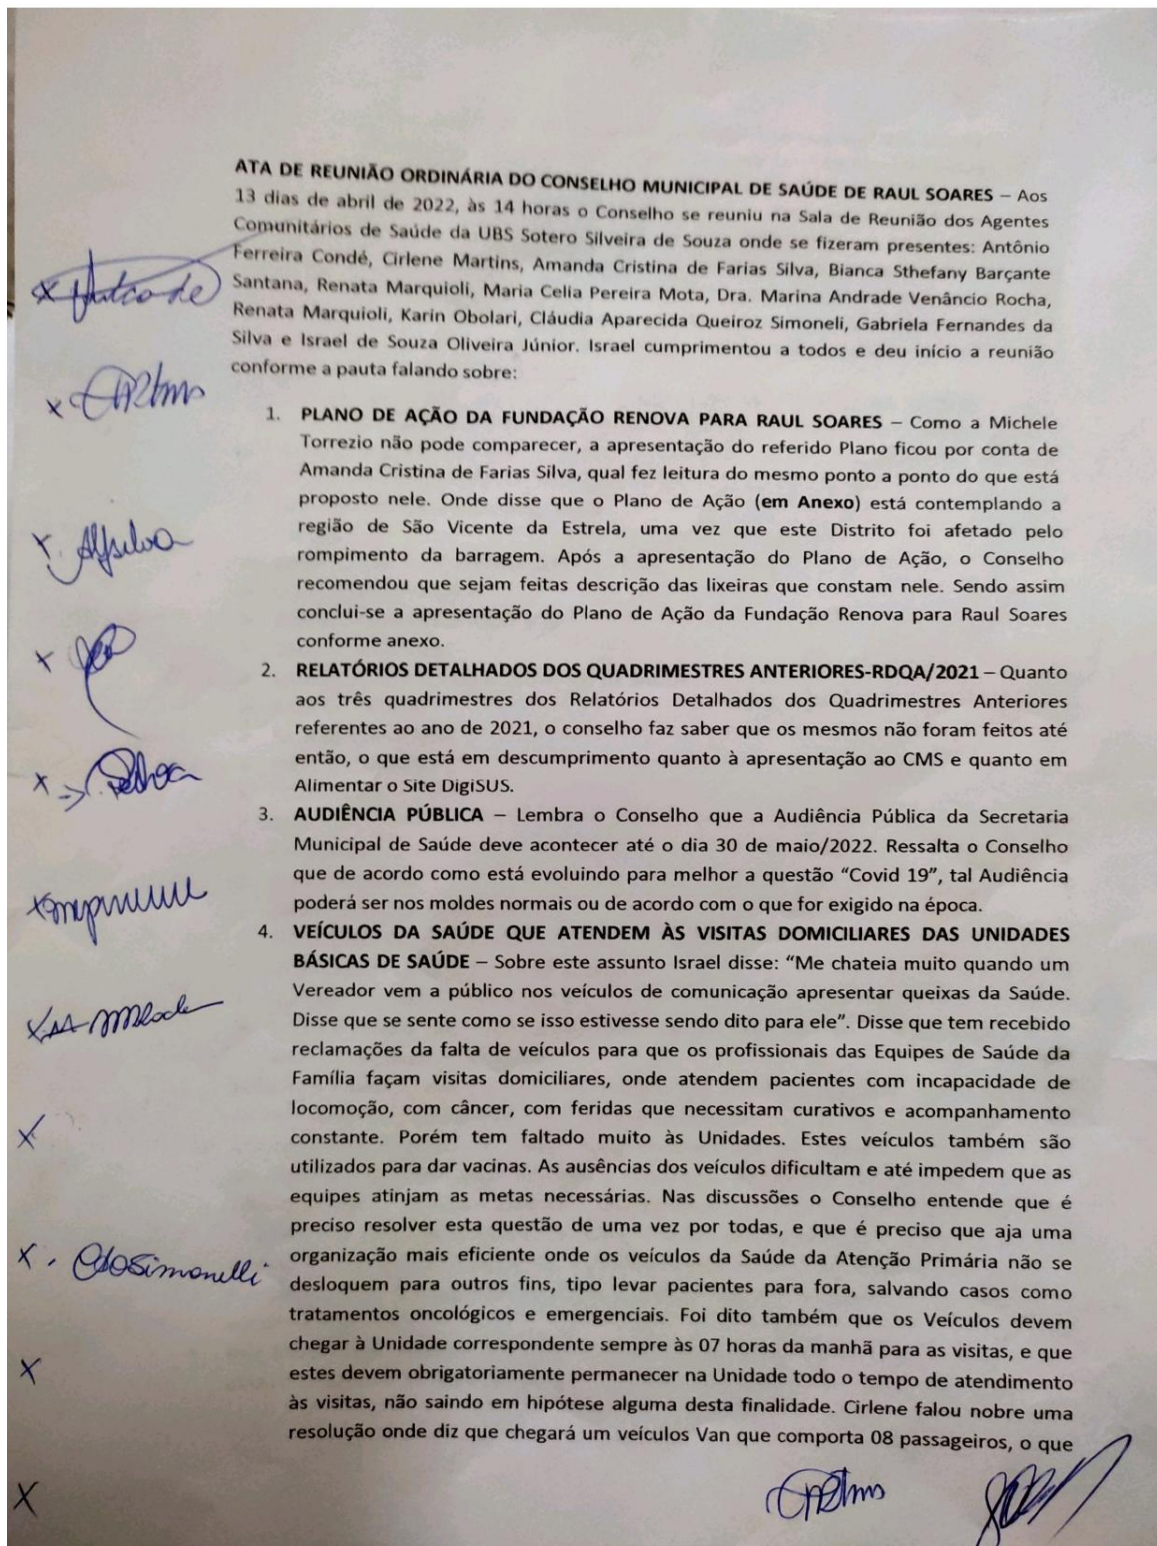 ATA DE REUNIÃO ORDINÁRIA DO CONSELHO MUNICIPAL DE SAÚDE DE RAUL SOARES – Aos
13 dias de abril de 2022, às 14 horas o Conselho se reuniu na Sala de Reunião dos Agentes
Comunitários de Saúde da UBS Sotero Silveira de Souza onde se fizeram presentes: Antônio
Ferreira Condé, Cirlene Martins, Amanda Cristina de Farias Silva, Bianca Sthefany Barçante
Santana, Renata Marquioli, Maria Celia Pereira Mota, Dra. Marina Andrade Venâncio Rocha,
Renata Marquioli, Karin Obolari, Cláudia Aparecida Queiroz Simoneli, Gabriela Fernandes da
Silva e Israel de Souza Oliveira Júnior. Israel cumprimentou a todos e deu início a reunião
conforme a pauta falando sobre:
1. PLANO DE AÇÃO DA FUNDAÇÃO RENOVA PARA RAUL SOARES – Como a Michele
Torrezio não pode comparecer, a apresentação do referido Plano ficou por conta de
Amanda Cristina de Farias Silva, qual fez leitura do mesmo ponto a ponto do que está
proposto nele. Onde disse que o Plano de Ação (em Anexo) está contemplando a
região de São Vicente da Estrela, uma vez que este Distrito foi afetado pelo
rompimento da barragem. Após a apresentação do Plano de Ação, o Conselho
recomendou que sejam feitas descrição das lixeiras que constam nele. Sendo assim
conclui-se a apresentação do Plano de Ação da Fundação Renova para Raul Soares
conforme anexo.
2. RELATÓRIOS DETALHADOS DOS QUADRIMESTRES ANTERIORES-RDQA/2021 – Quanto
aos três quadrimestres dos Relatórios Detalhados dos Quadrimestres Anteriores
referentes ao ano de 2021, o conselho faz saber que os mesmos não foram feitos até
então, o que está em descumprimento quanto à apresentação ao CMS e quanto em
Alimentar o Site DigiSUS.
3. AUDIÊNCIA PÚBLICA – Lembra o Conselho que a Audiência Pública da Secretaria
Municipal de Saúde deve acontecer até o dia 30 de maio/2022. Ressalta o Conselho
que de acordo como está evoluindo para melhor a questão “Covid 19”, tal Audiência
poderá ser nos moldes normais ou de acordo com o que for exigido na época.
4. VEÍCULOS DA SAÚDE QUE ATENDEM ÀS VISITAS DOMICILIARES DAS UNIDADES
BÁSICAS DE SAÚDE – Sobre este assunto Israel disse: “Me chateia muito quando um
Vereador vem a público nos veículos de comunicação apresentar queixas da Saúde.
Disse que se sente como se isso estivesse sendo dito para ele”. Disse que tem recebido
reclamações da falta de veículos para que os profissionais das Equipes de Saúde da
Família façam visitas domiciliares, onde atendem pacientes com incapacidade de
locomoção, com câncer, com feridas que necessitam curativos e acompanhamento
constante. Porém tem faltado muito às Unidades. Estes veículos também são
utilizados para dar vacinas. As ausências dos veículos dificultam e até impedem que as
equipes atinjam as metas necessárias. Nas discussões o Conselho entende que é
preciso resolver esta questão de uma vez por todas, e que é preciso que aja uma
organização mais eficiente onde os veículos da Saúde da Atenção Primária não se
desloquem para outros fins, tipo levar pacientes para fora, salvando casos como
tratamentos oncológicos e emergenciais. Foi dito também que os Veículos devem
chegar à Unidade correspondente sempre às 07 horas da manhã para as visitas, e que
estes devem obrigatoriamente permanecer na Unidade todo o tempo de atendimento
às visitas, não saindo em hipótese alguma desta finalidade. Cirlene falou nobre uma
resolução onde diz que chegará um veículos Van que comporta 08 passageiros, o que